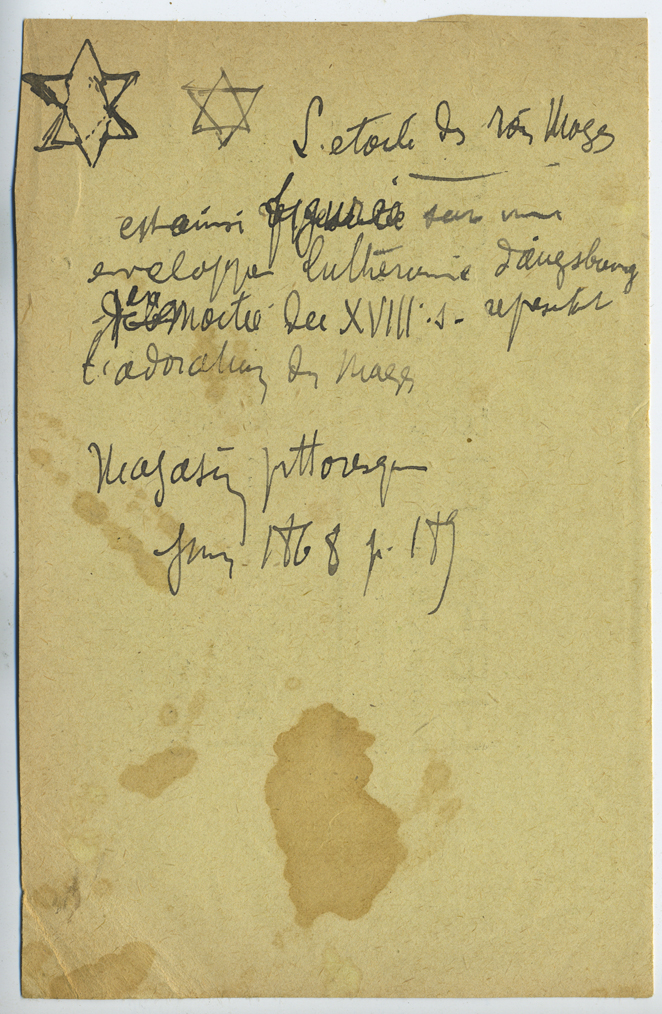 L'etoile des rois Mages
est ainsi figurée sur une
enveloppe luthérienne d'Augsbourg
moitié du XVIII s. représentant
l'adoration des Mages
Magasin pittoresque
Juin 1868 p. 189